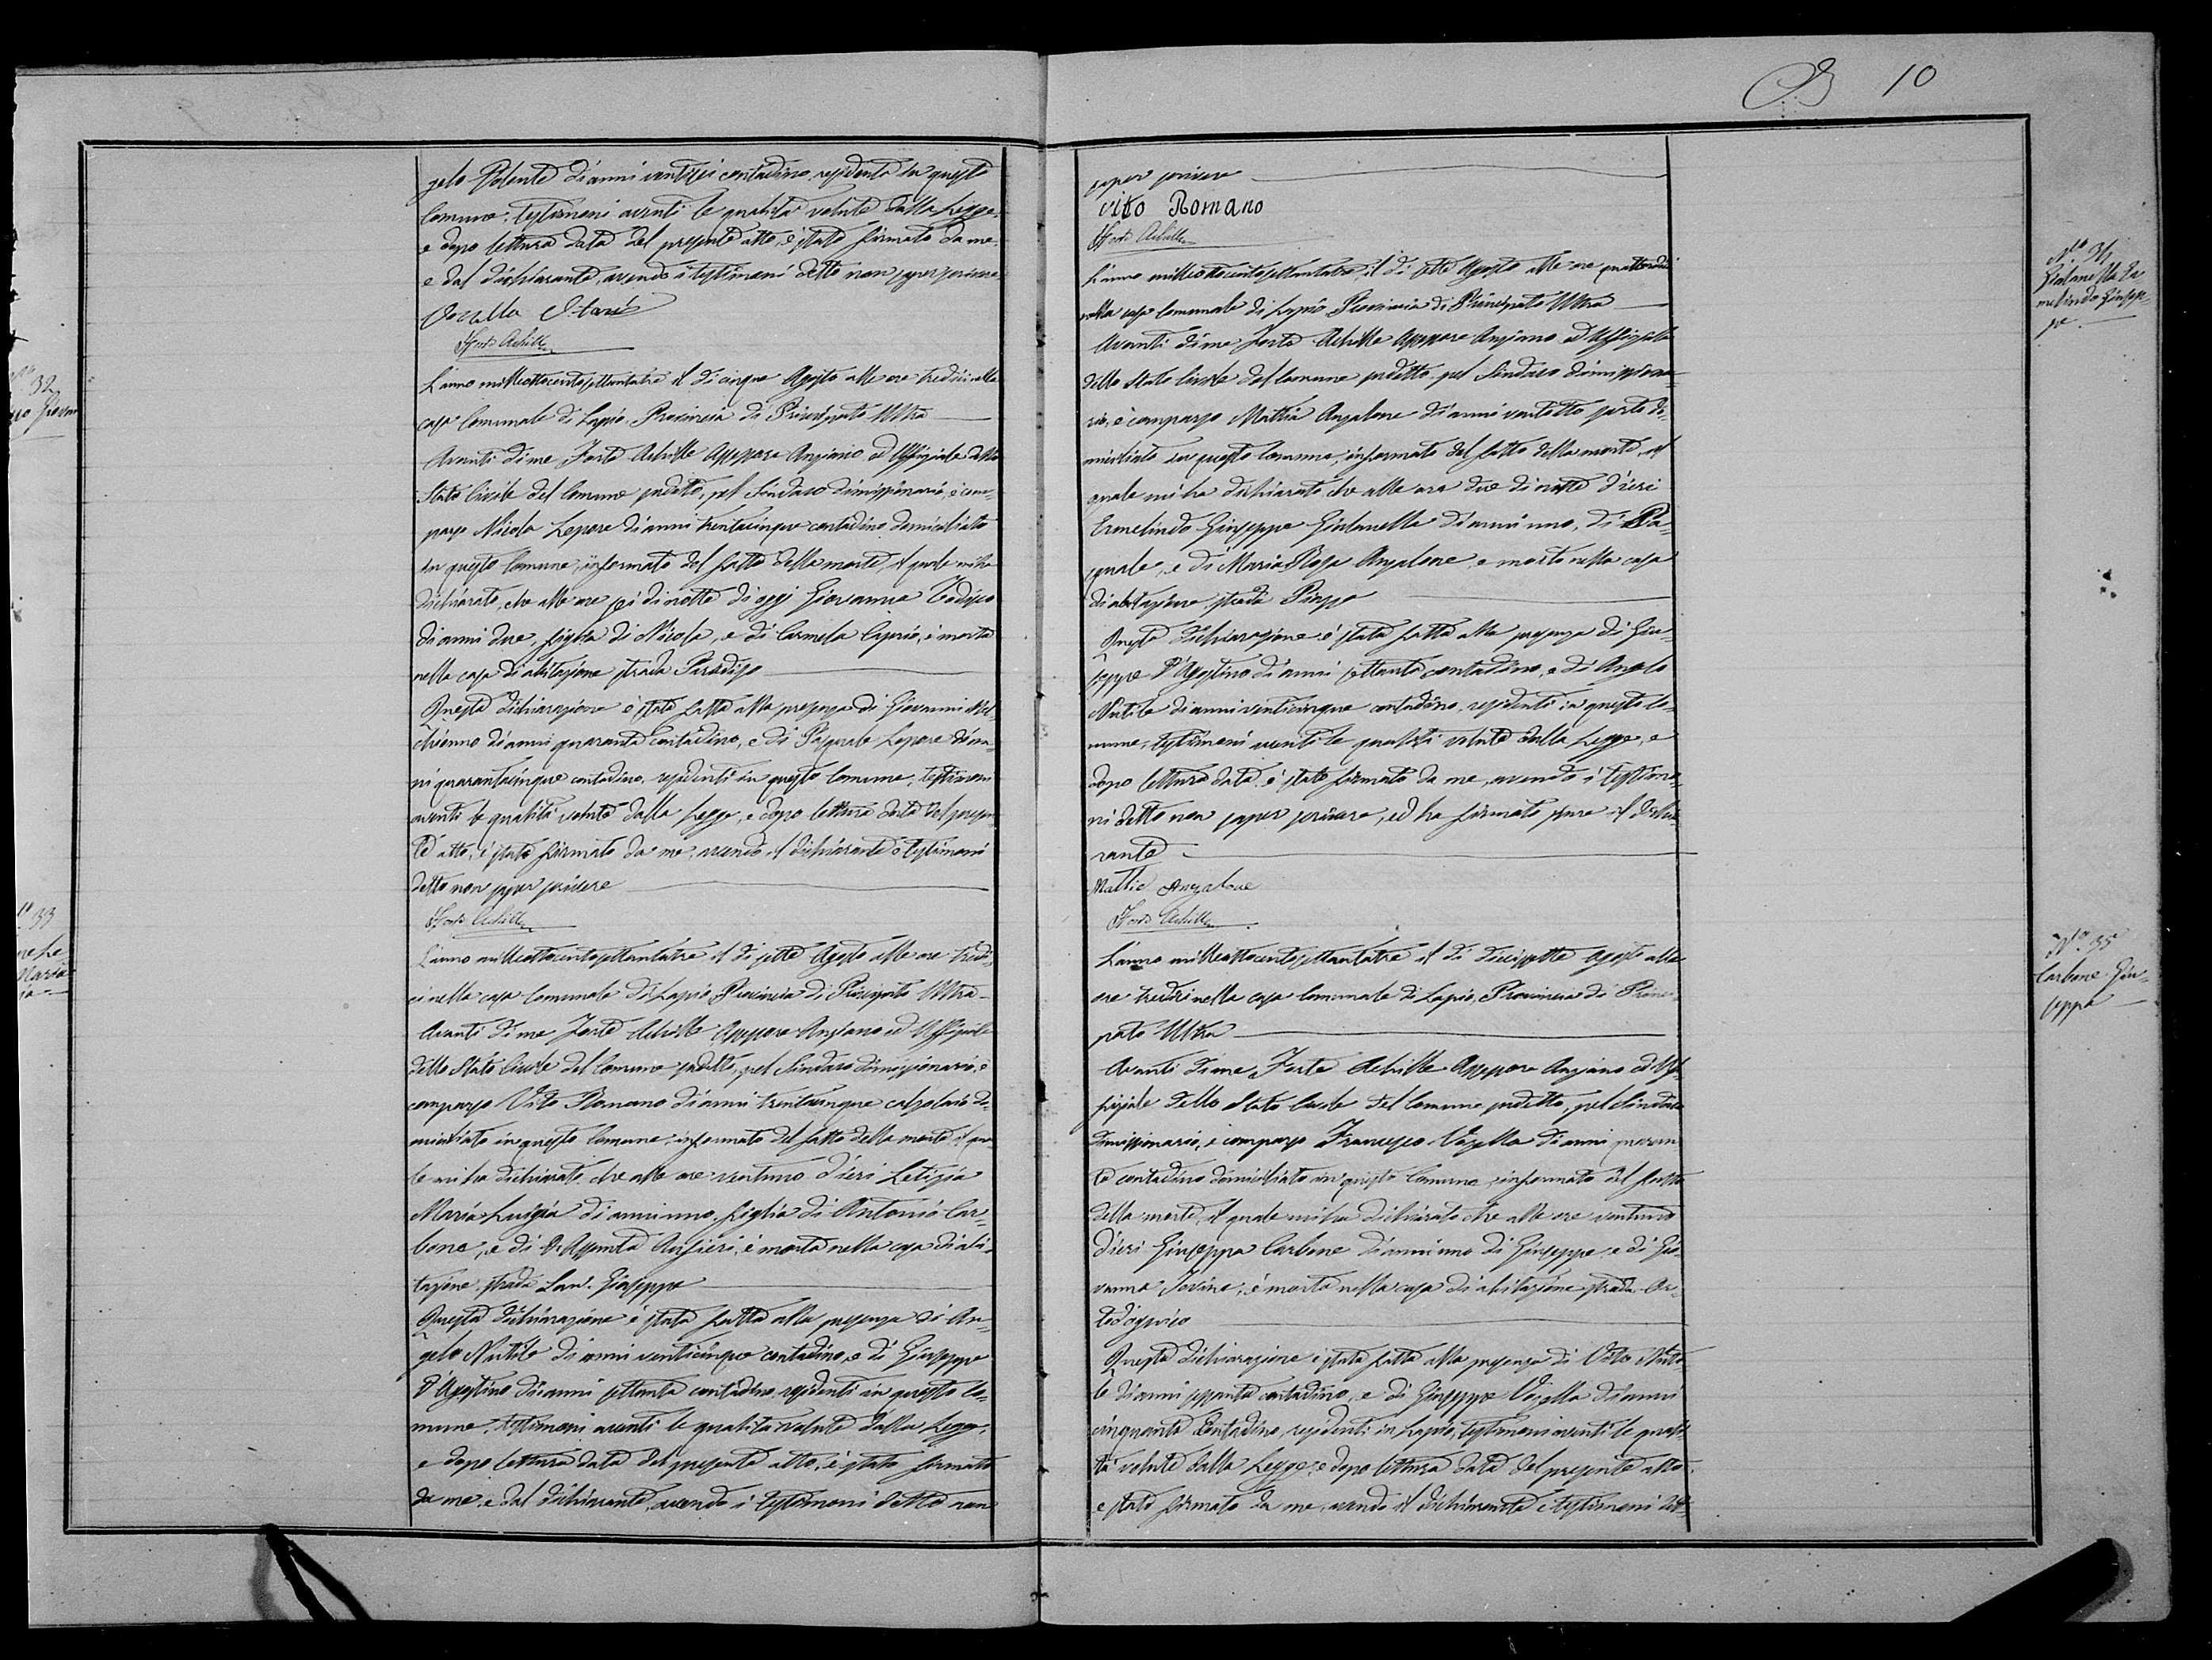 gelo Volente di anni ventisei contadino residenti in questo
Comune. testimoni aventi le qualità volute dalla Legge,
e dopo lettura data del presente atto, è stato firmato da me
e dal dichiarante, avendo i testimoni detto non saper scrivere
Forte Achille
No 32
L'anno milleottocentosettantatre il di cinque Agosto alle ore tredici nella
casa Comunale di Lapio Provincia di Principato Ultra
Avanti di me Forte Achille Assessore Anziano ed Uffiziale dello
Stato Civile del Comune sudetto, pel Sindaco dimissionario, è com-
parso Nicola Lepore di anni trentacinque contadino domiciliato
in questo Comune, informato del fatto della morte, il quale mi ha
dichiarato, che alle ore sei di notte di oggi Giovanna Todisco
di anni due, figlia di Nicola, e di Carmela Caprio, è morta
nella casa di abitazione strada Paradiso
Questa dichiarazione è stata fatta alla presenza di Giovanni Mel-
chionno di anni quaranta contadino, e di Pasquale Lepore di an-
ni quarantacinque contadino, residenti in questo Comune, testimoni
aventi le qualità volute dalla Legge, e dopo lettura data del presen-
te atto, è stato firmato da me, avendo il dichiarante e testimoni
detto non saper scrivere
Forte Achille
No 33
L'anno milleottocentosettantatre il di sette Agosto alle ore tredi-
ci nella casa Comunale di Lapio Provincia di Principato Ultra
Avanti di me Forte Achille Assessore Anziano ed Uffiziale
dello Stato Civile del Comune sudetto, pel Sindaco dimissionario, è
comparso Vito Romano di anni trentacinque calzolaio do-
miciliato in questo Comune, informato del fatto della morte il qua-
le mi ha dichiarato, che alle ore ventuno d'ieri Letizia
Maria Luigia di anni uno, figlia di Antonio Car-
bone, e di Da Assunta Anzieri, è morta nella casa di abi-
tazione strada San. Giuseppe
Questa dichiarazione è stata fatta alla presenza di An-
gelo Nutile di anni venticinque contadino, e di Giuseppe
D'Agostino di anni settanta contadino, residenti in questo Co-
mune, testimoni aventi le qualità volute dalla Legge,
e dopo lettura data del presente atto, è stato firmato
da me, e dal dichiarante, avendo i testimoni detto non
10
saper scrivere
vito Romano
Forte Achille
No 34
L'anno milleottocentosettantatre, il di otto Agosto alle ore quattordici
nella casa Comunale di Lapio Provincia di Principato Ultra
Avanti di me Forte Achille Assessore Anziano ed Uffiziale
dello Stato Civile del Comune sudetto, pel Sindaco dimissiona-
rio, è comparso Mattia Anzalone di anni ventotto sarto do-
miciliato in questo Comune, informato del fatto della morte, il
quale mi ha dichiarato che alle ore due di notte d'ieri
Ermelindo Giuseppe Giulanella di anni uno, di Pa-
squale, e di Maria Rosa Anzalone, è morto nella casa
di abitazione strada Piazza
Questa dichiarazione è stata fatta alla presenza di Giu-
seppe D'Agostino di anni settanta contadino, e di Angelo
Nutile di anni venticinque contadino, residenti in questo Co-
mune, testimoni aventi le qualità volute dalla Legge, e
dopo lettura data è stato firmato da me, avendo i testimo-
ni detto non saper scrivere, ed ha firmato pure il dichia-
rante
Mattia Anzalone
Forte Achille
No 35
Carbone Giu-
seppa
L'anno milleottocentosettantatre il di diciassette Agosto alle
ore tredici nella casa Comunale di Lapio, Provincia di Princi-
pato Ultra
Avanti di me Forte Achille Assessore Anziano ed Uf-
fiziale dello Stato Civile del Comune sudetto, pel Sindaco
dimissionario, è comparso Francesco Vozella di anni quaran-
ta contadino domiciliato in questo Comune, informato del fatto
della morte, il quale mi ha dichiarato che alle ore ventuno
d'ieri Giuseppa Carbone di anni uno di Giuseppe, e di Gio-
vanna Iovine, è morta nella casa di abitazione strada
Questa dichiarazione è stata fatta alla presenza di Vito Nuti-
le di anni sessanta contadino, e di Giuseppe Vozella di anni
cinquanta Contadino, residenti in Lapio, testimoni aventi le quali-
tà volute dalla Legge, e dopo lettura data del presente atto
è stato firmato da me, avendo il dichiarante e testimoni det-